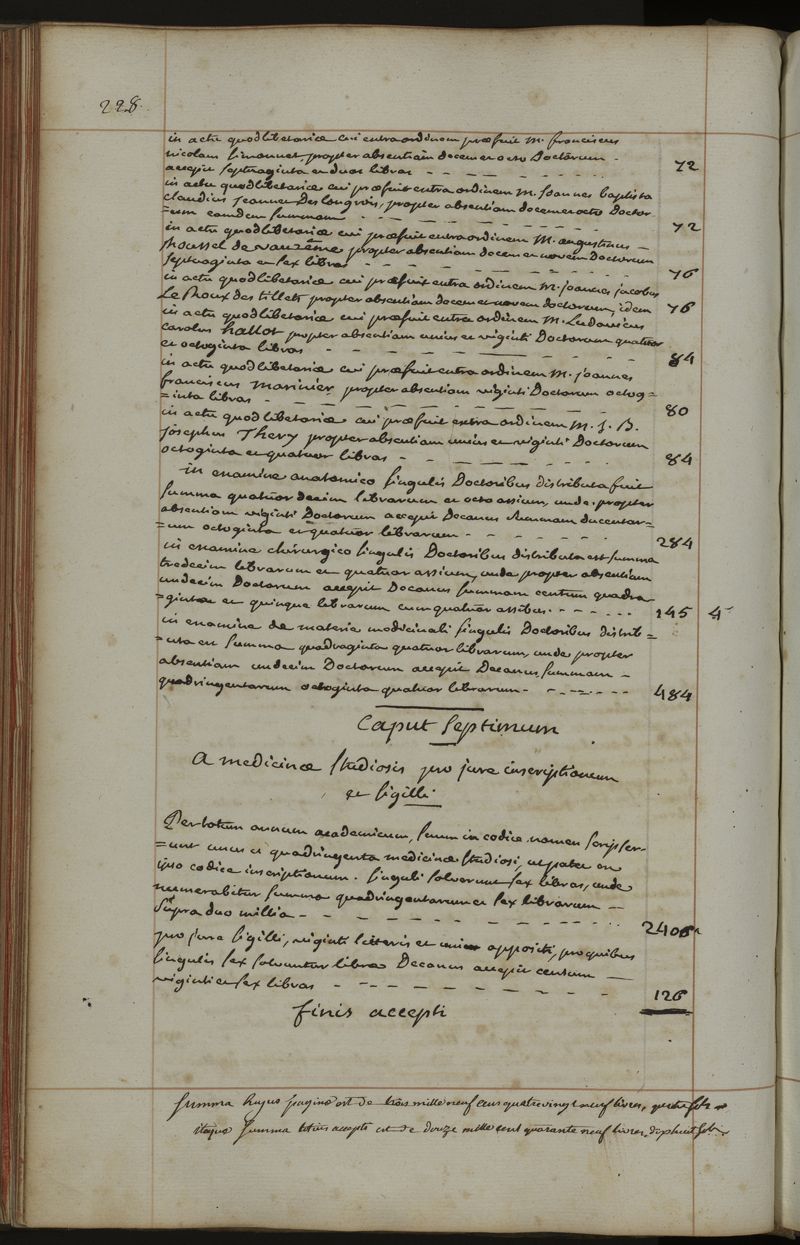 228.
in actu quodlibetariæ cui extra ordinem præfuit M. franciscus
nicolaus Simonnet, propter absentiam decem et octo Doctorum -
accepit septuaginta et duas libras - - - - - - - - 72
in actu quodlibetariæ cui præfuit extra ordinem M. Joannes baptista
claudius jeannet Des longrois, propter absentiam decem et octo Doctor
=um eamdem summam - - - - - - - - - 72
in actu quodlibetariæ cui præfuit extra ordinem M. augustinus -
Roussel de vauzesme propter absentiam decem et novem Doctorum
septuaginta et sex libras - - - - - - - - - 76
in actu quodlibetariæ cui præfuit extra ordinem M. joannes jacobus
Le Roux des tillets propter absentiam decem et novem doctorum, idem 76
in actu quodlibetariæ cui præfuit extra ordinem M. Ludovicus
carolus hallot propter absentiam unius et viginti Doctorum quatuor
et octoginta libras - - - - - - - - - 84
in actu quodlibetariæ cui præfuit extra ordinem M. joannes
franciscus marinier propter absentiam viginti Doctorum octog=
=inta libras - - - - - - - - - 80
in actu quodlibetariæ cui præfuit extra ordinem M. J. B.
josephus Thery propter absentiam unius et viginti Doctorum
octoginta et quatuor libras - - - - - - - 84
in examine anatomico singulis Doctoribus distributa fuit
summa quatuor decim librarum et octo assium, unde propter
absentiam viginti Doctorum accepit Decanus summam ducentar=
=um octoginta et quatuor librarum - - - - - - - 284
in examine chirurgico singulis Doctoribus distributa est summa
tredecim librarum et quatuor assium, unde propter absentiam
undecim Doctorum accepit Decanus summam centum quadra
=ginta et quinque librarum cum quatuor assibus - - - - - - 145 4
in examine de materia medicinali singulis Doctoribus distrib=
=uta est summa quadraginta quatuor librarum, unde propter
absentiam undecim Doctorum accepit Decanus, summam -
quadringentarum octoginta quatuor librarum - - - - - - - 484
Caput septimum
A medicinæ studiosis pro jure inscriptionum
et sigilli
Per totum annum academicum, suum in codice nomen scripser-
=unt unus et quadringenta medicinæ studiosi, ut patet ex
ipso codice inscriptionum. singuli solverunt sex libras, unde
numerabitur summa quadringentarum et sex librarum -
supra duo millia - - - - - - - - - - 2406
pro jure sigilli, viginti litteris et uni appositi, pro quibus
singulis sex solvuntur libræ Decanus accepit centum -
viginti et sex libras - - - - - - - - - 126
finis accepti
summa hujus paginæ est de trois mille neuf cens quatre vingt neuf livres, quatre sols
itaque summa totius accepti est de douze mille cent quarante neuf livres, dix huit sols